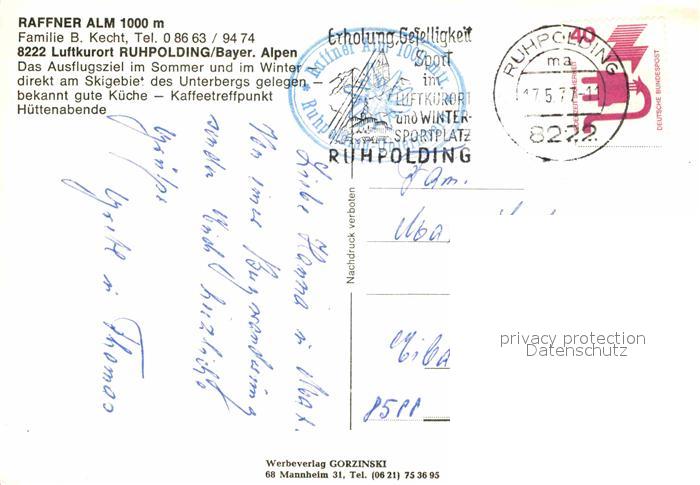 RAFFNER ALM 1000 m
Familie B. Kecht, Tel. 0 86 63 / 94 74
8222 Luftkurort RUHPOLDING/Bayer. Alpen
Das Ausflugsziel im Sommer und im Winter –
direkt am Skigebiet des Unterbergs gelegen –
bekannt gute Küche – Kaffeetreffpunkt
Hüttenabende
Erholung, Geselligkeit
Sport
im
LUFTKURORT
und WINTER-
SPORTPLATZ
RUHPOLDING
Raffner Alm 1000 m
Ruhpolding
RUHPOLDING
ma
17.5.77-11
8222
40
DEUTSCHE BUNDESPOST
Liebe Hanna u. Max.
Von einer Bergwanderung
senden
Grüße
u. Thomas
Nachdruck verboten
Fam.
privacy protection
Datenschutz
Werbeverlag GORZINSKI
68 Mannheim 31, Tel. (06 21) 75 36 95